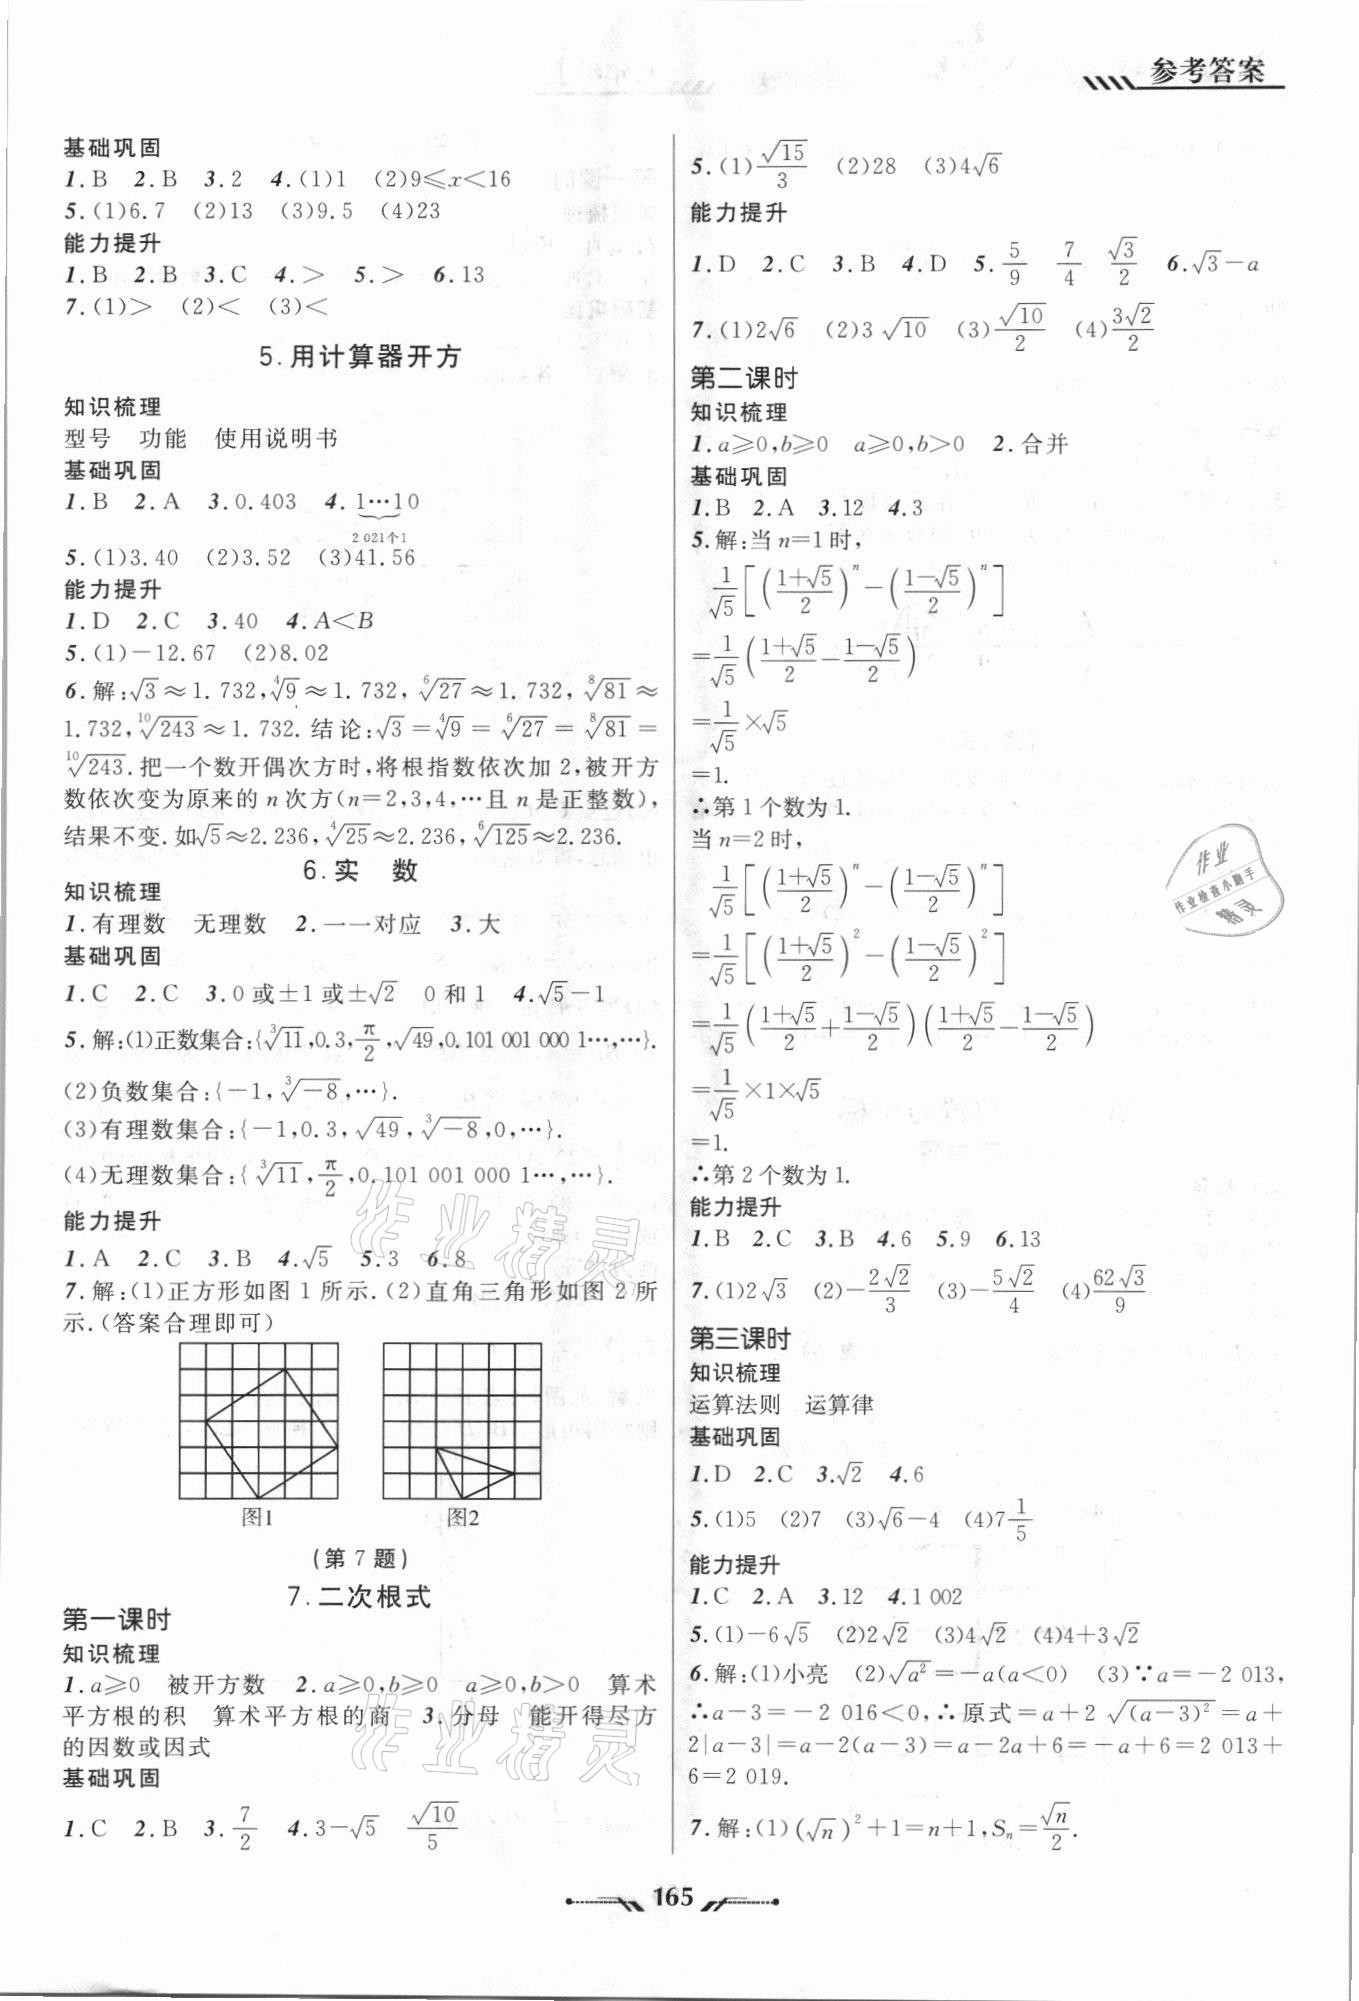 参考答案
基础巩固
1.B 2.B 3.2 4.(1)1 (2)9⩽x<16
5.(1)6.7 (2)13 (3)9.5 (4)23
能力提升
1.B 2.B 3.C 4.> 5.> 6.13
7.(1)> (2)< (3)<
5.用计算器开方
知识梳理
型号 功能 使用说明书
基础巩固
1.B 2.A 3.0.403 4.1…10
2 021个1
5.(1)3.40 (2)3.52 (3)41.56
能力提升
1.D 2.C 3.40 4.A<B
5.(1)-12.67 (2)8.02
6.解:√3≈1.732,⁴√9≈1.732,⁶√27≈1.732,⁸√81≈
1.732,¹⁰√243≈1.732.结论:√3=⁴√9=⁶√27=⁸√81=
¹⁰√243.把一个数开偶次方时,将根指数依次加2,被开方
数依次变为原来的n次方(n=2,3,4,…且n是正整数),
结果不变.如√5≈2.236,⁴√25≈2.236,⁶√125≈2.236.
6.实 数
知识梳理
1.有理数 无理数 2.一一对应 3.大
基础巩固
1.C 2.C 3.0或±1或±√2 0和1 4.√5-1
5.解:(1)正数集合:{³√11,0.3,π/2,√49,0.101 001 000 1…,…}.
(2)负数集合:{-1,³√-8,…}.
(3)有理数集合:{-1,0.3,√49,³√-8,0,…}.
(4)无理数集合:{³√11,π/2,0.101 001 000 1…,…}.
能力提升
1.A 2.C 3.B 4.√5 5.3 6.8
7.解:(1)正方形如图1所示.(2)直角三角形如图2所
示.(答案合理即可)
图1 图2
(第7题)
7.二次根式
第一课时
知识梳理
1.a⩾0 被开方数 2.a⩾0,b⩾0 a⩾0,b>0 算术
平方根的积 算术平方根的商 3.分母 能开得尽方
的因数或因式
基础巩固
1.C 2.B 3.7/2 4.3-√5 √10/5
5.(1)√15/3 (2)28 (3)4√6
能力提升
1.D 2.C 3.B 4.D 5.5/9 7/4 √3/2 6.√3-a
7.(1)2√6 (2)3√10 (3)√10/2 (4)3√2/2
第二课时
知识梳理
1.a⩾0,b⩾0 a⩾0,b>0 2.合并
基础巩固
1.B 2.A 3.12 4.3
5.解:当n=1时,
1/√5[((1+√5)/2)ⁿ-((1-√5)/2)ⁿ]
=1/√5((1+√5)/2-(1-√5)/2)
=1/√5×√5
=1.
∴第1个数为1.
当n=2时,
1/√5[((1+√5)/2)ⁿ-((1-√5)/2)ⁿ]
=1/√5[((1+√5)/2)²-((1-√5)/2)²]
=1/√5((1+√5)/2+(1-√5)/2)((1+√5)/2-(1-√5)/2)
=1/√5×1×√5
=1.
∴第2个数为1.
能力提升
1.B 2.C 3.B 4.6 5.9 6.13
7.(1)2√3 (2)-2√2/3 (3)-5√2/4 (4)62√3/9
第三课时
知识梳理
运算法则 运算律
基础巩固
1.D 2.C 3.√2 4.6
5.(1)5 (2)7 (3)√6-4 (4)7 1/5
能力提升
1.C 2.A 3.12 4.1 002
5.(1)-6√5 (2)2√2 (3)4√2 (4)4+3√2
6.解:(1)小亮 (2)√a²=-a(a<0) (3)∵a=-2 013,
∴a-3=-2 016<0,∴原式=a+2√(a-3)²=a+
2|a-3|=a-2(a-3)=a-2a+6=-a+6=2 013+
6=2 019.
7.解:(1)(√n)²+1=n+1,Sₙ=√n/2.
作业
作业检查小助手
精灵
作业精灵
作业精灵
165